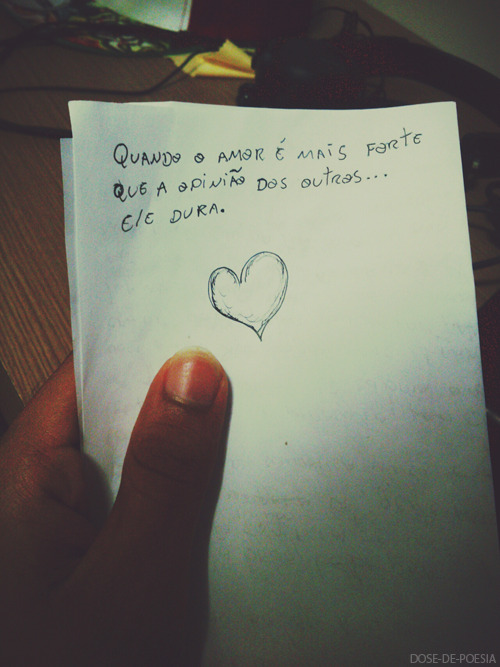 QUANDO O AMOR É MAIS FORTE
QUE A OPINIÃO DOS OUTROS...
ELE DURA.
DOSE-DE-POESIA